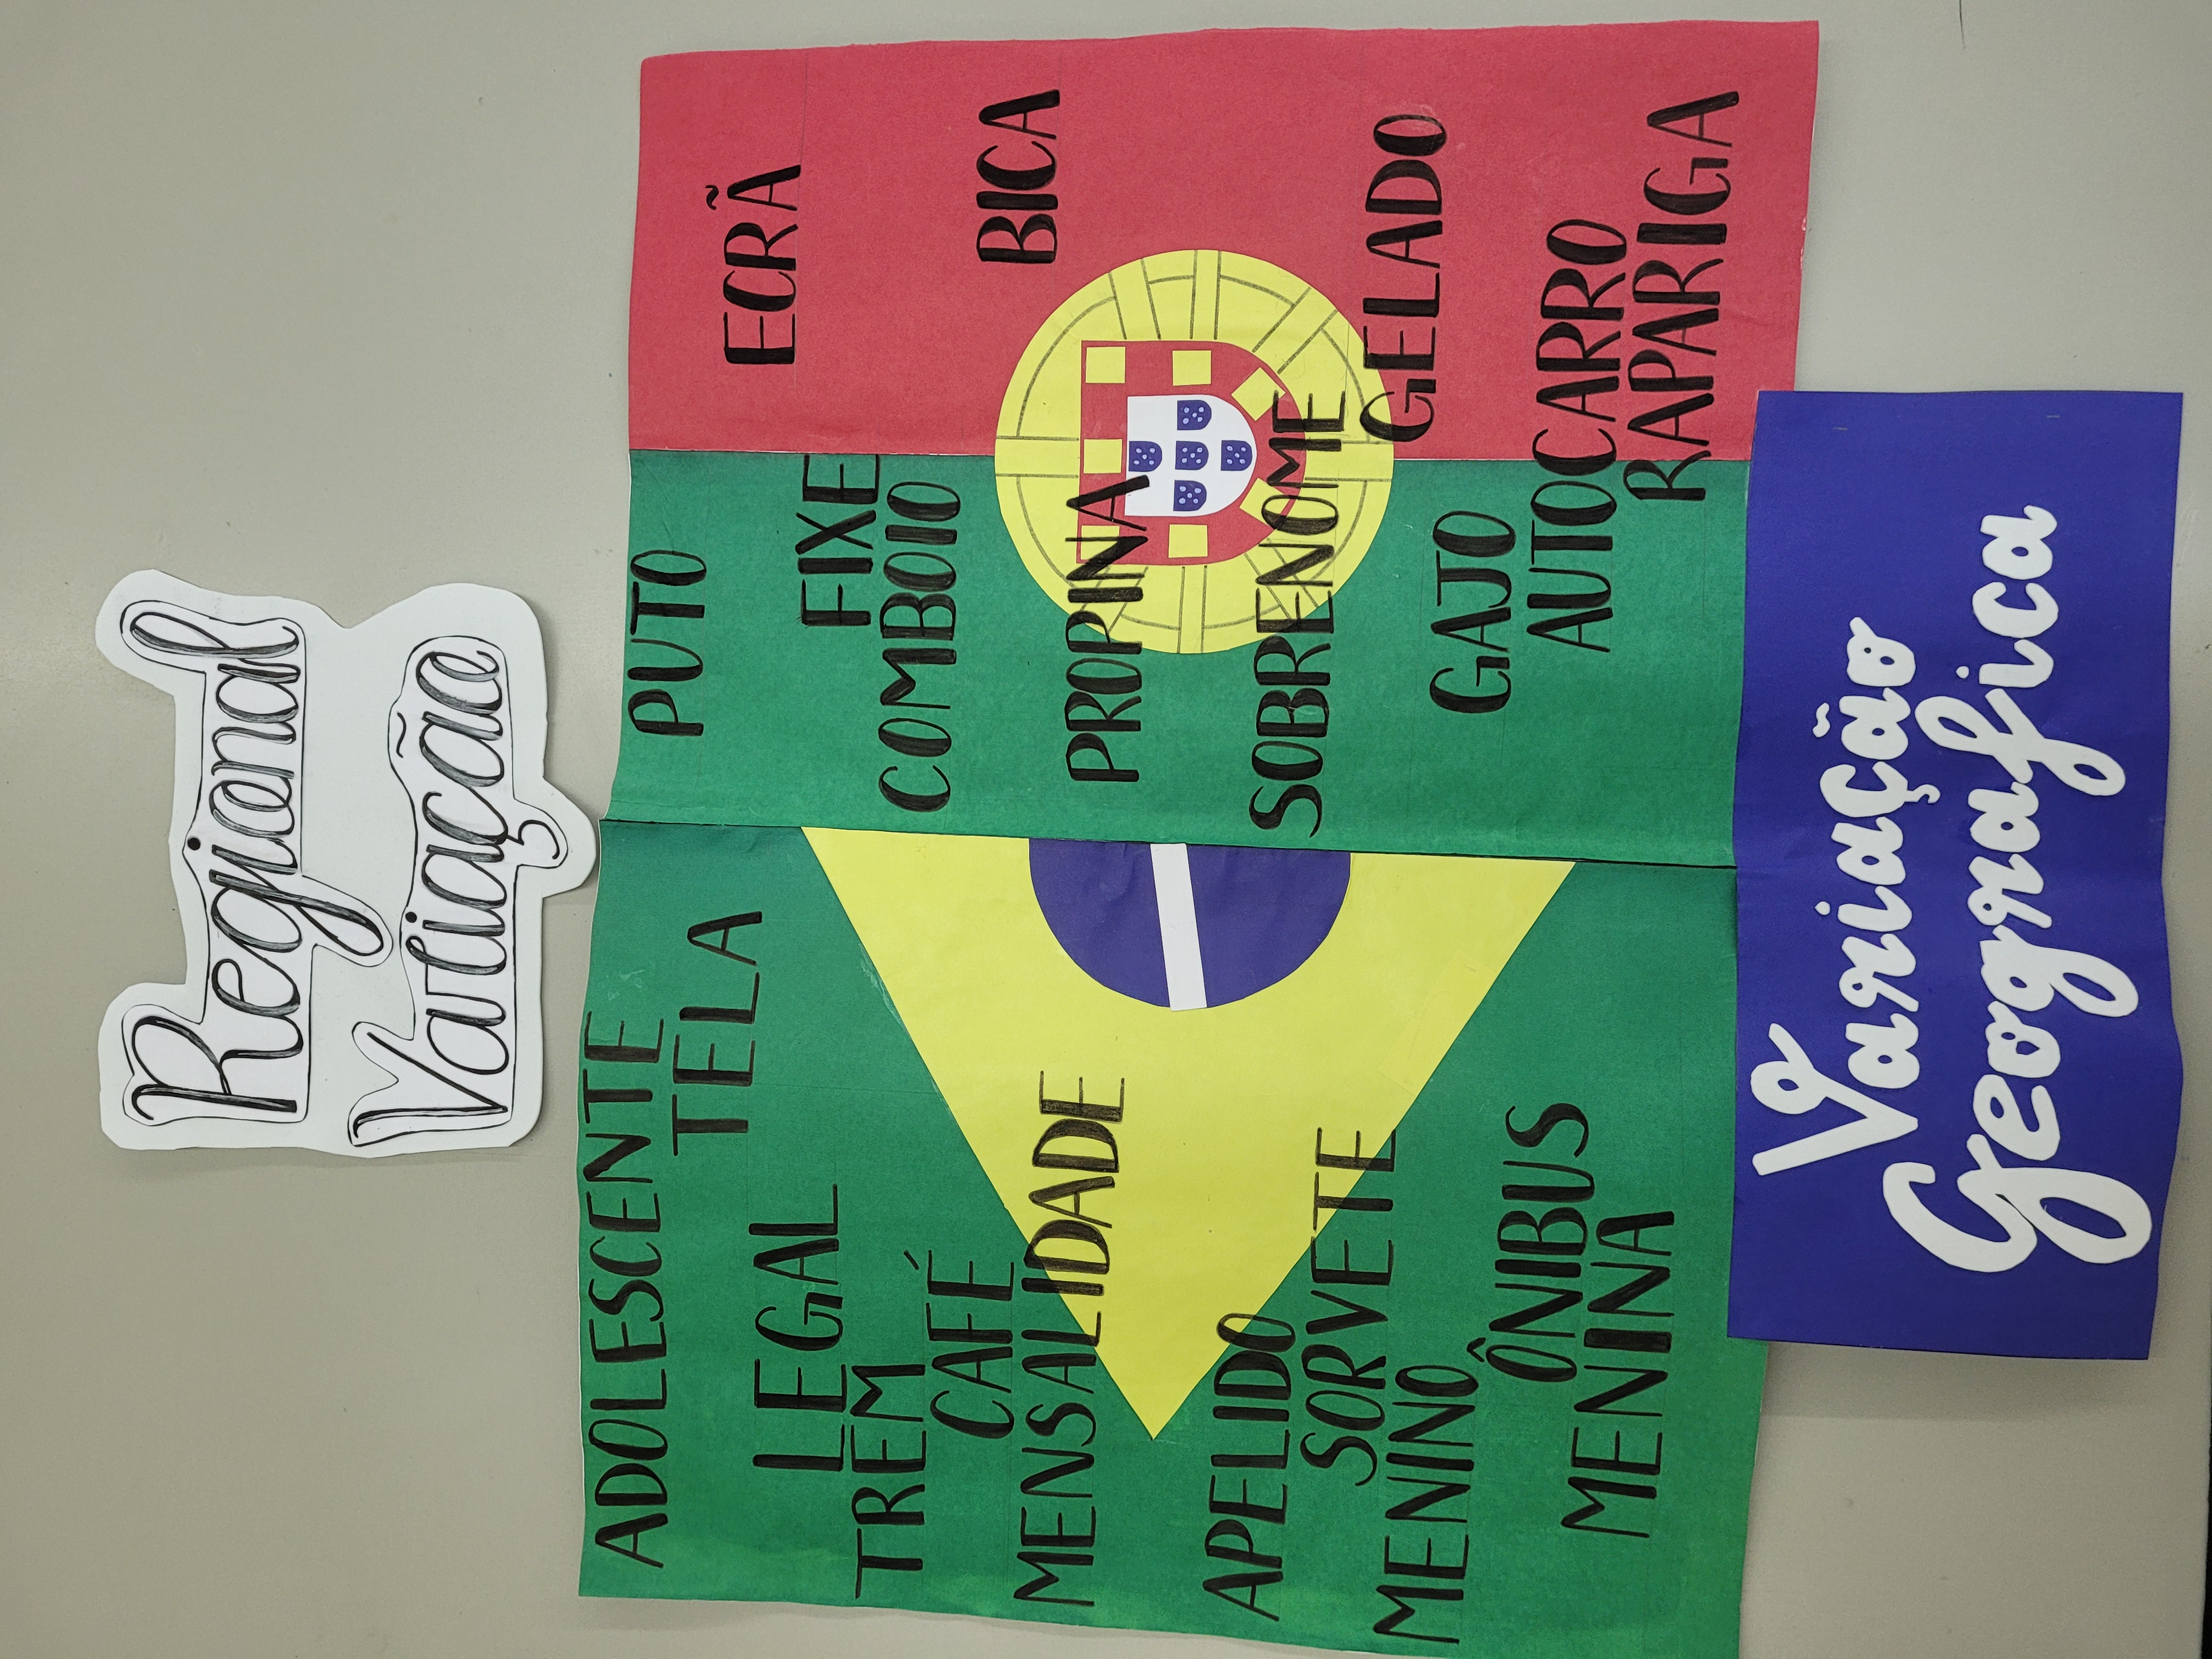 Regional
Variação
ADOLESCENTE
TELA
LEGAL
TREM
CAFÉ
MENSALIDADE
APELIDO
SORVETE
MENINO
ÔNIBUS
MENINA
PUTO
ECRÃ
FIXE
COMBOIO
BICA
PROPINA
SOBRENOME
GELADO
GAJO
AUTOCARRO
RAPARIGA
Variação
Geografica